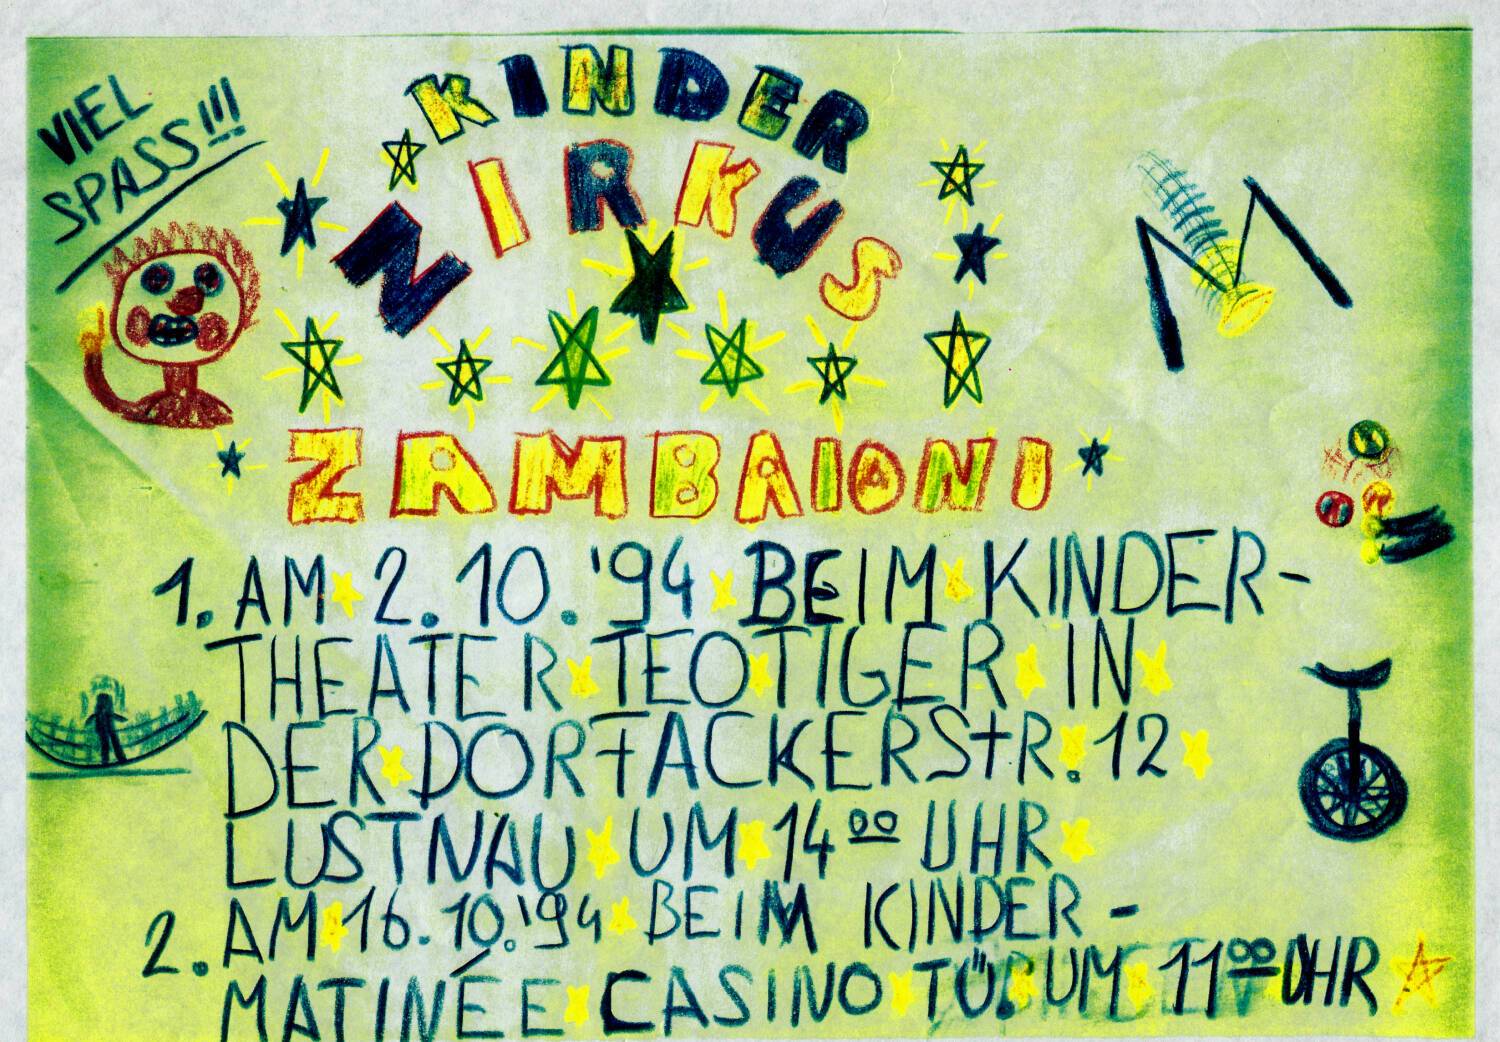 VIEL
SPASS!!!
KINDER
ZIRKUS
ZAMBAIONI
1. AM 2.10.'94 BEIM KINDER-
THEATER TEOTIGER IN
DER DORFACKERSTR. 12
LUSTNAU UM 14⁰⁰ UHR
2. AM 16.10.'94 BEIM KINDER-
MATINÉE CASINO TÜB. UM 11⁰⁰ UHR